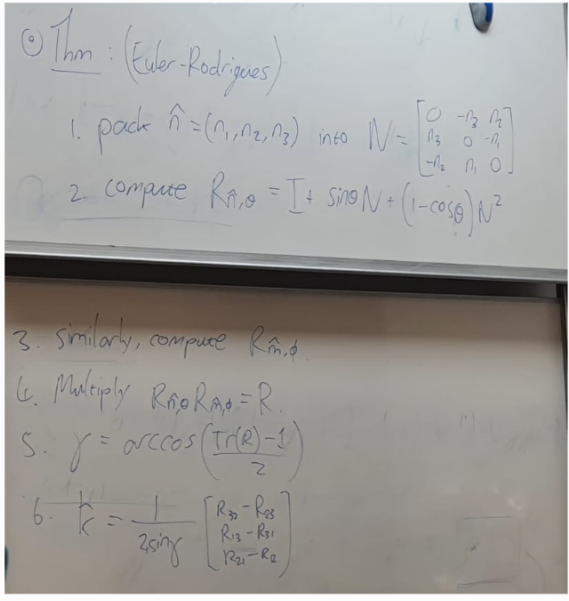 ⊙ Thm: (Euler-Rodrigues)
1. pack n̂ = (n₁, n₂, n₃) into N = [0 -n₃ n₂; n₃ 0 -n₁; -n₂ n₁ 0]
2. compute R_n̂,θ = I + sinθ N + (1-cosθ) N²
3. similarly, compute R_m̂,ϕ.
4. Multiply R_n̂,θ R_m̂,ϕ = R.
5. γ = arccos((Tr(R) - 1)/2)
6. k̂ = 1/(2sinγ) [R₃₂ - R₂₃; R₁₃ - R₃₁; R₂₁ - R₁₂]